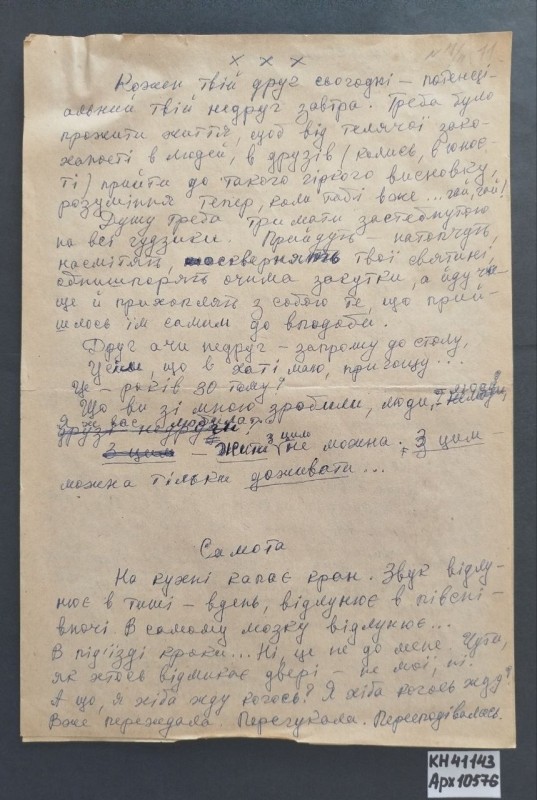 х х х
11
Кожен твій друг сьогодні – потенці-
альний твій недруг завтра. Треба було
прожити життя, щоб від телячої зако-
ханості в людей, в друзів (колись, в юнос-
ті) прийти до такого гіркого висновку,
розуміння тепер, коли тобі вже... гай, гай!
Душу треба тримати застебнутою
на всі гудзики. Прийдуть – натопчуть,
насмітять, осквернять твої святині,
обнишпорять очима закутки, а йдучи
ще й прихоплять з собою те, що прий-
шлось їм самим до вподоби.
Друг а чи недруг – запрошу до столу,
Усім, що в хаті маю, пригощу...
Це – років 30 тому?
Що ви зі мною зробили, люди,
Я ж вас любила?
З цим – жити з цим не можна. З цим –
можна тільки доживати...
Самота
На кухні капає кран. Звук відлу-
нює в тиші – вдень, відлунює в півсні –
вночі. В самому мозку відлунює...
В під'їзді кроки... Ні, це не до мене. Чути,
як хтось відмикає двері – не мої, ні.
А що, я хіба жду когось? Я хіба когось жду?
Вже переждала. Перегукала. Пересподівалась.
КН41143
Арх10576